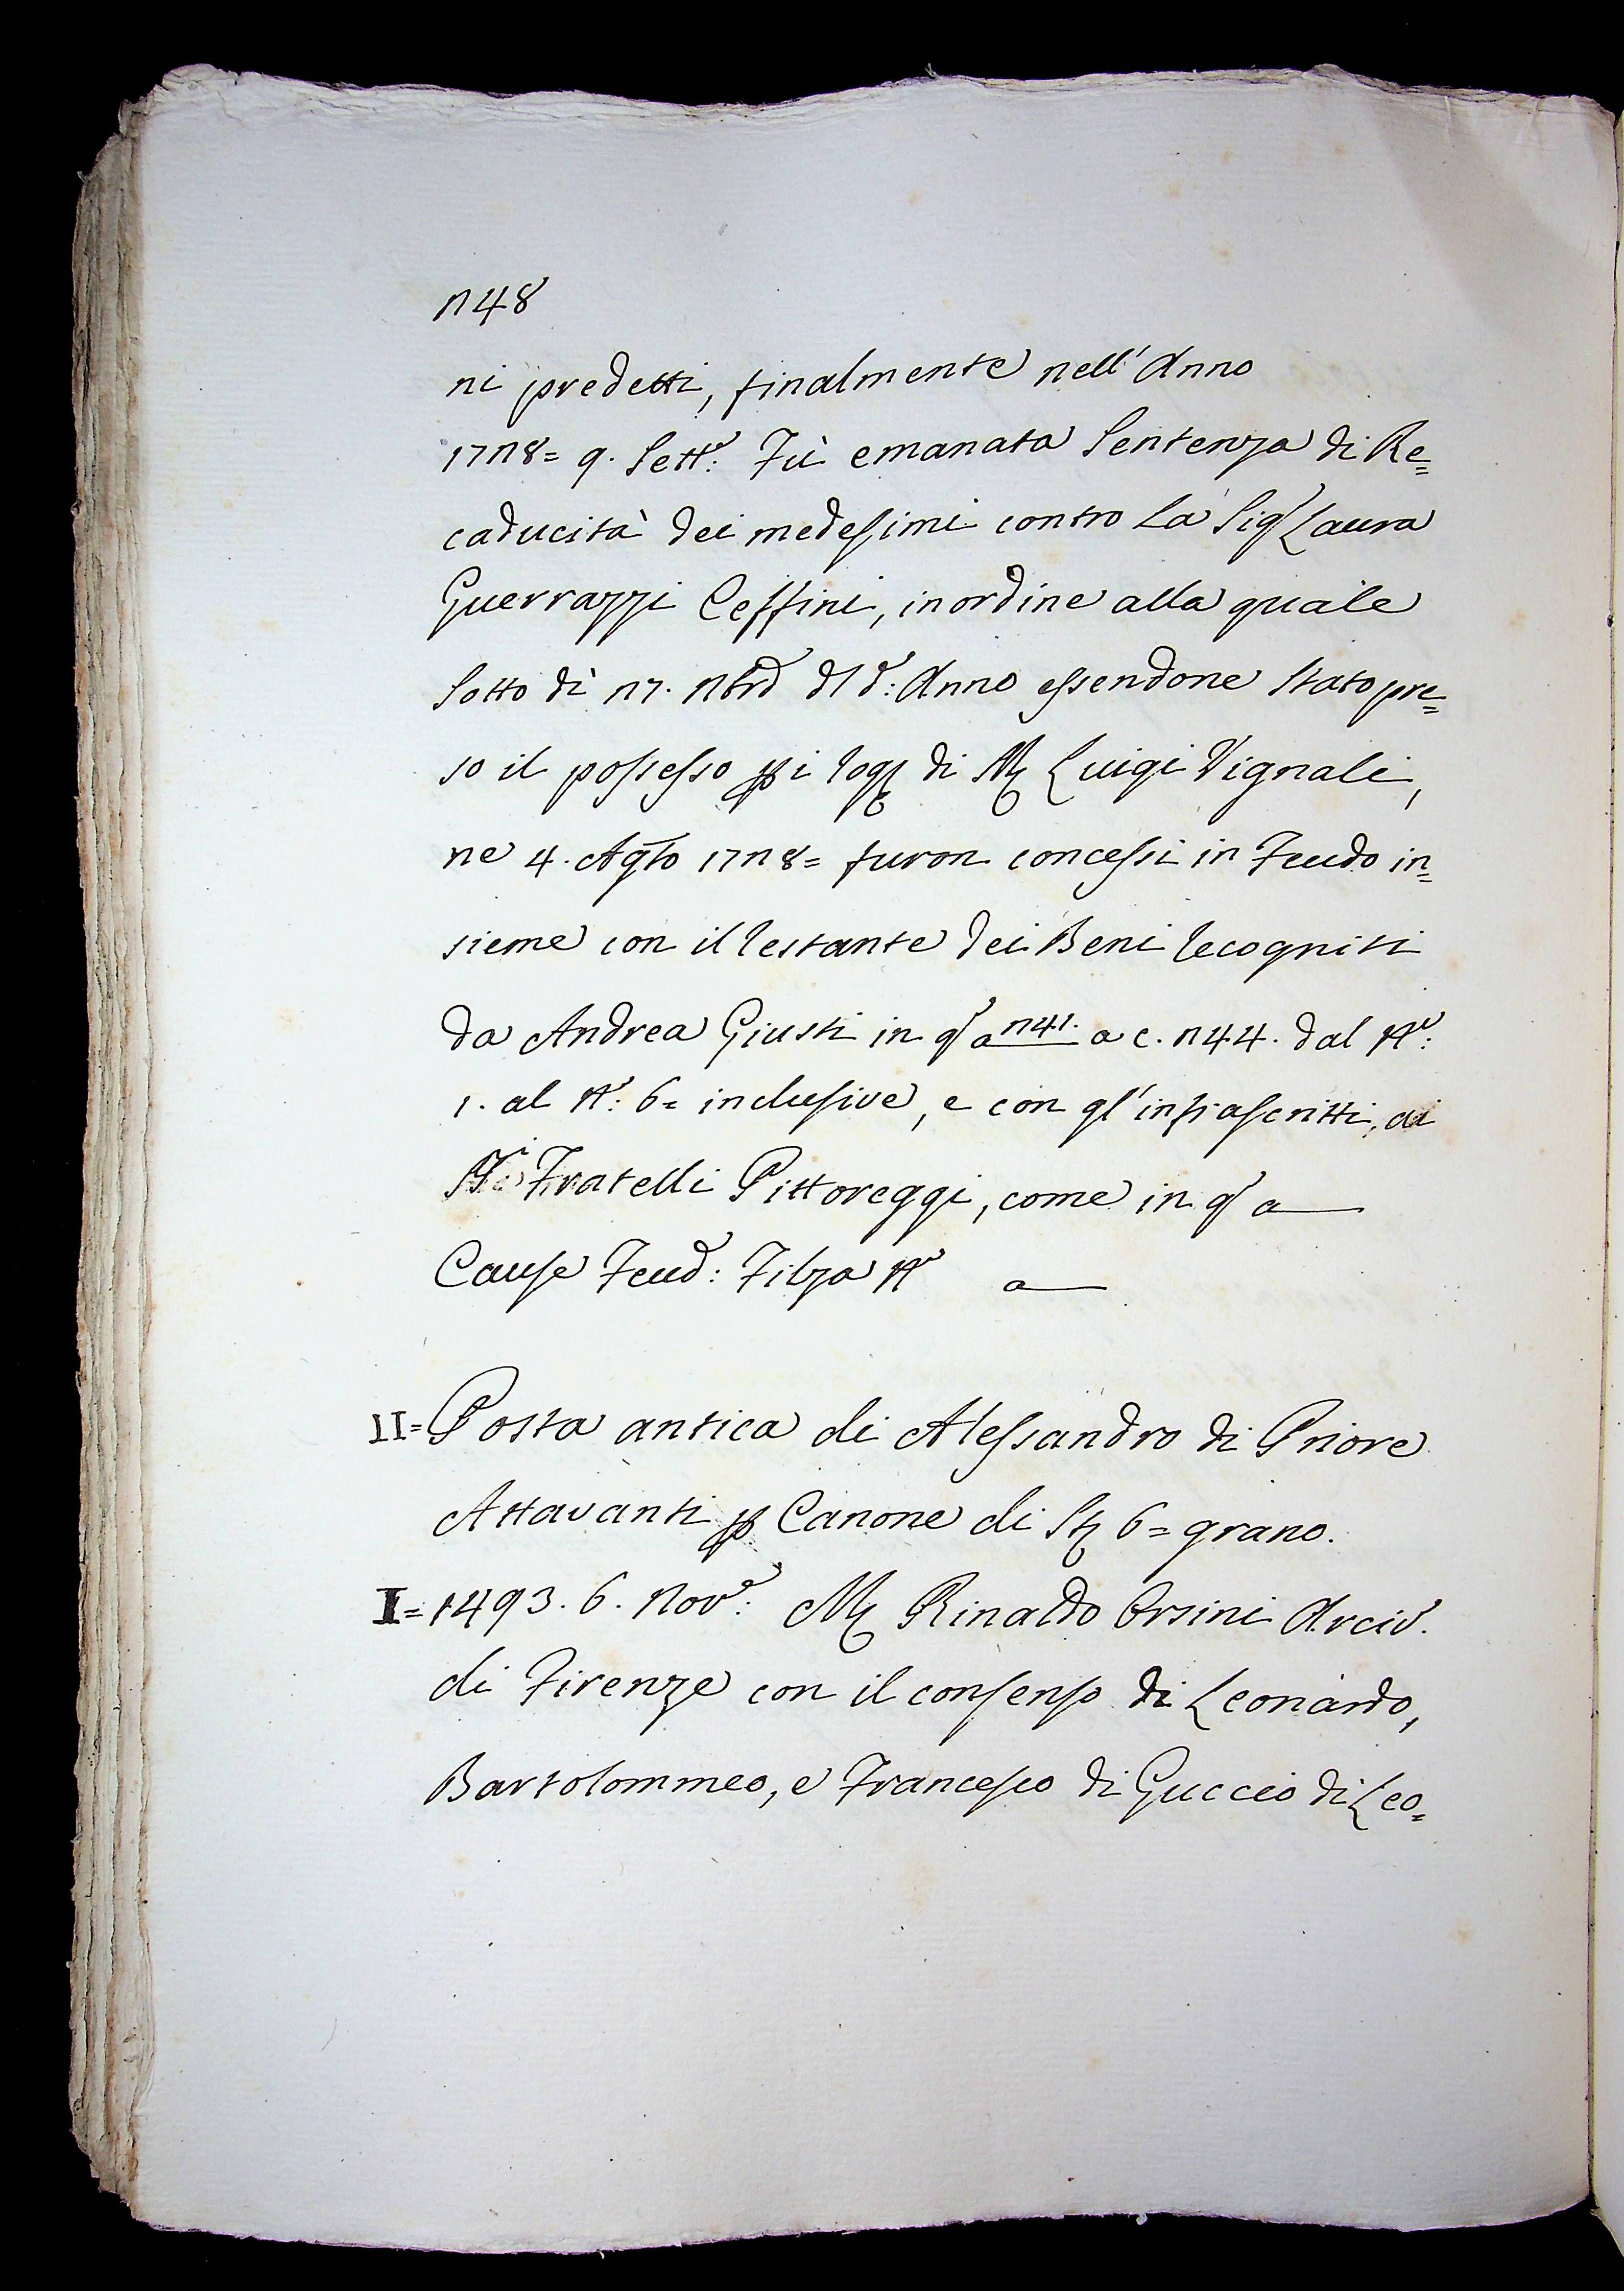 248
ni predetti, finalmente nell'Anno
1728= 9. Sett.e: Fù emanata Sentenza di Re=
caducità dei medesimi contro la Sig.ra Laura
Guerrazzi Ceffini, in ordine alla quale
sotto dì 27. Nbre dl d.: Anno essendone stato pre=
so il possesso p i rog. di M. Luigi Vignali,
ne 4. Agto 1728= furon concessi in Feudo in=
sieme con il restante dei Beni recogniti
da Andrea Giusti in q.o a 241. a c. 244. dal N.o:
1. al N.o: 6= inclusive, e con gl'infrascritti, ai
Fratelli Pittoreggi, come in q.o a
Cause Feud: Filza N.o a
II= Posta antica di Alessandro di Priore
Attavanti p Canone di St. 6= grano.
I= 1493. 6. Nov.e: M. Rinaldo Orsini Arciv.
di Firenze con il consenso di Leonardo,
Bartolommeo, e Francesco di Guccio di Leo=